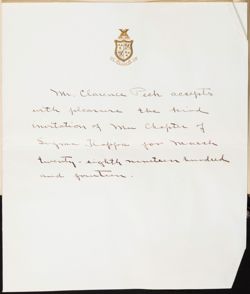 Mr. Clarence Peck accepts
with pleasure the kind
invitation of Mu Chapter of
Sigma Kappa for March
twenty-eighth nineteen hundred
and fourteen.